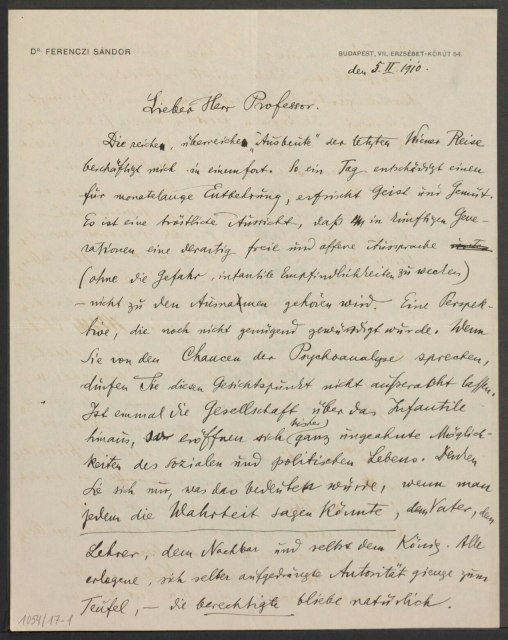 Dr. FERENCZI SÁNDOR
BUDAPEST, VII., ERZSÉBET-KÖRÚT 54.
den 5. II. 1910.
Lieber Herr Professor.
Die reiche, überreiche "Ausbeute" der letzten Wiener Reise
beschäftigt mich in einemfort. So ein Tag entschädigt einen
für monatelange Entbehrung, erfrischt Geist und Gemüt.
Es ist eine tröstliche Aussicht, daß in künftigen Gene-
rationen eine derartig freie und offene Aussprache
(ohne die Gefahr, infantile Empfindlichkeiten zu wecken)
– nicht zu den Ausnahmen gehören wird. Eine Perspek-
tive, die noch nicht genügend gewürdigt wurde. Wenn
Sie von den Chancen der Psychoanalyse sprechen,
dürfen Sie diesen Gesichtspunkt nicht außeracht lassen.
Ist einmal die Gesellschaft über das Infantile
hinaus, eröffnen sich bisher ganz ungeahnte Möglich-
keiten des sozialen und politischen Lebens. Denken
Sie sich nur, was das bedeuten würde, wenn man
jedem die Wahrheit sagen könnte, dem Vater, dem
Lehrer, dem Nachbar und selbst dem König. Alle
erlogene, sich selber aufgedrängte Autorität gienge zum
Teufel, – die berechtigte bliebe natürlich.
1054/17-1